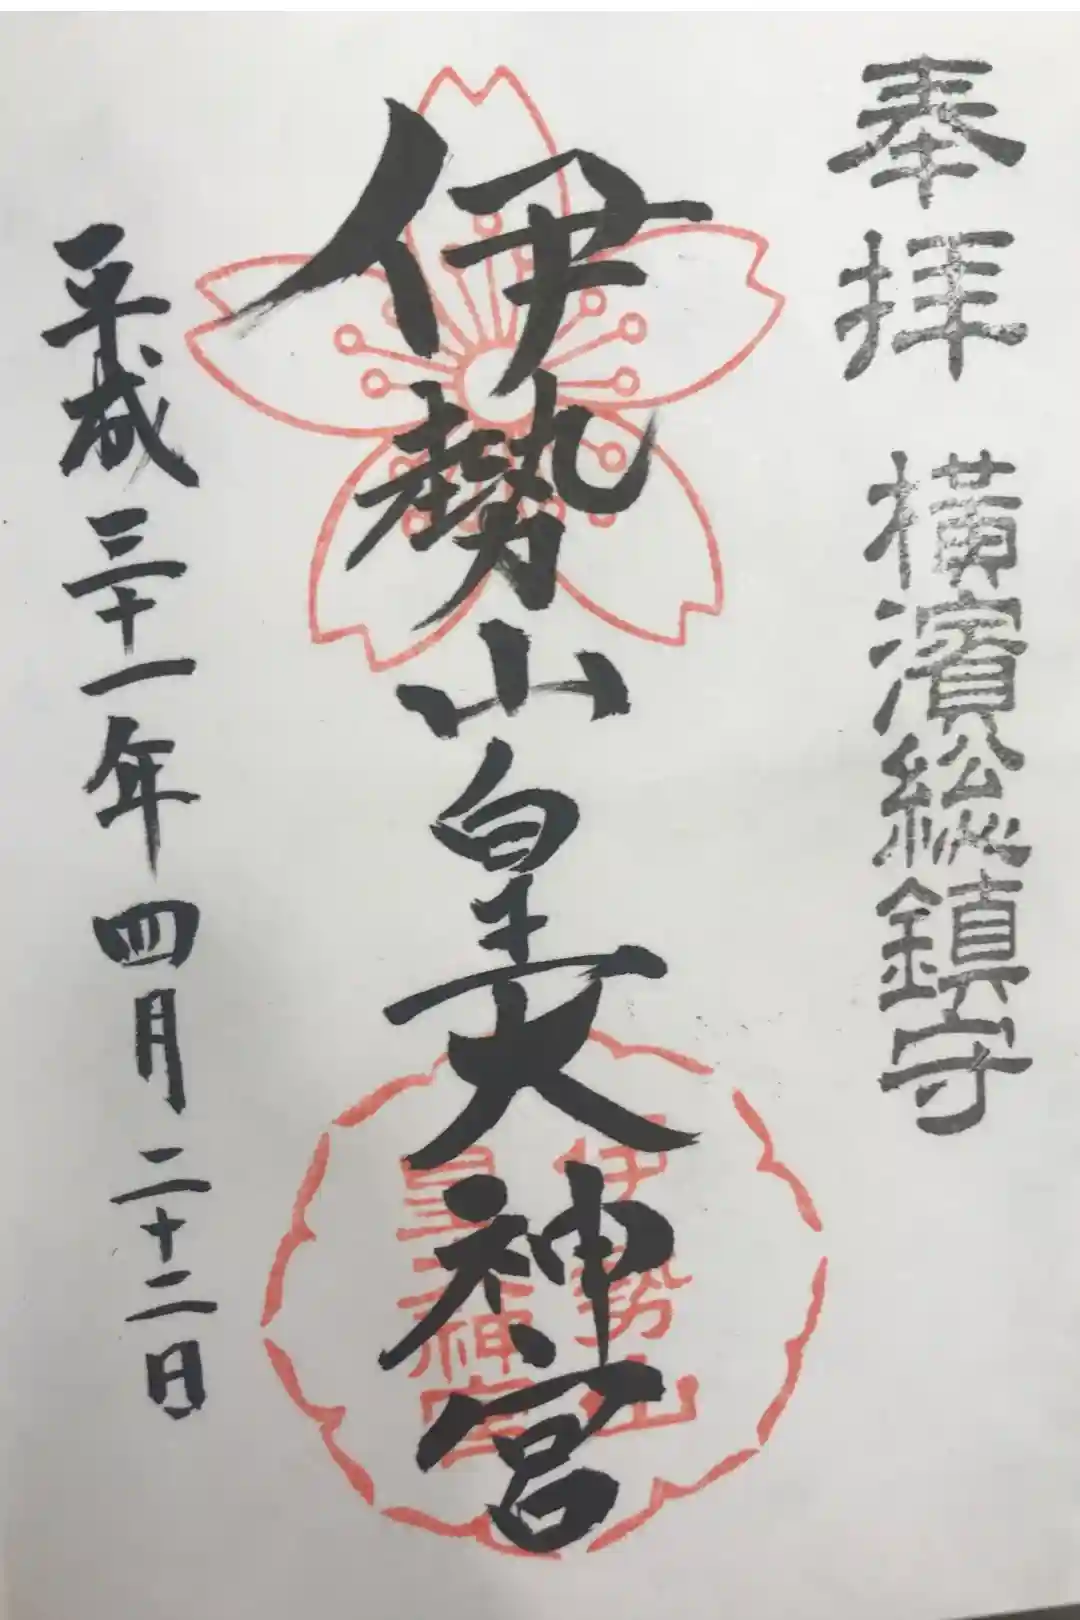 奉拝 横濱総鎮守
伊勢山皇大神宮
伊勢山
皇大神宮
平成三十一年四月二十二日